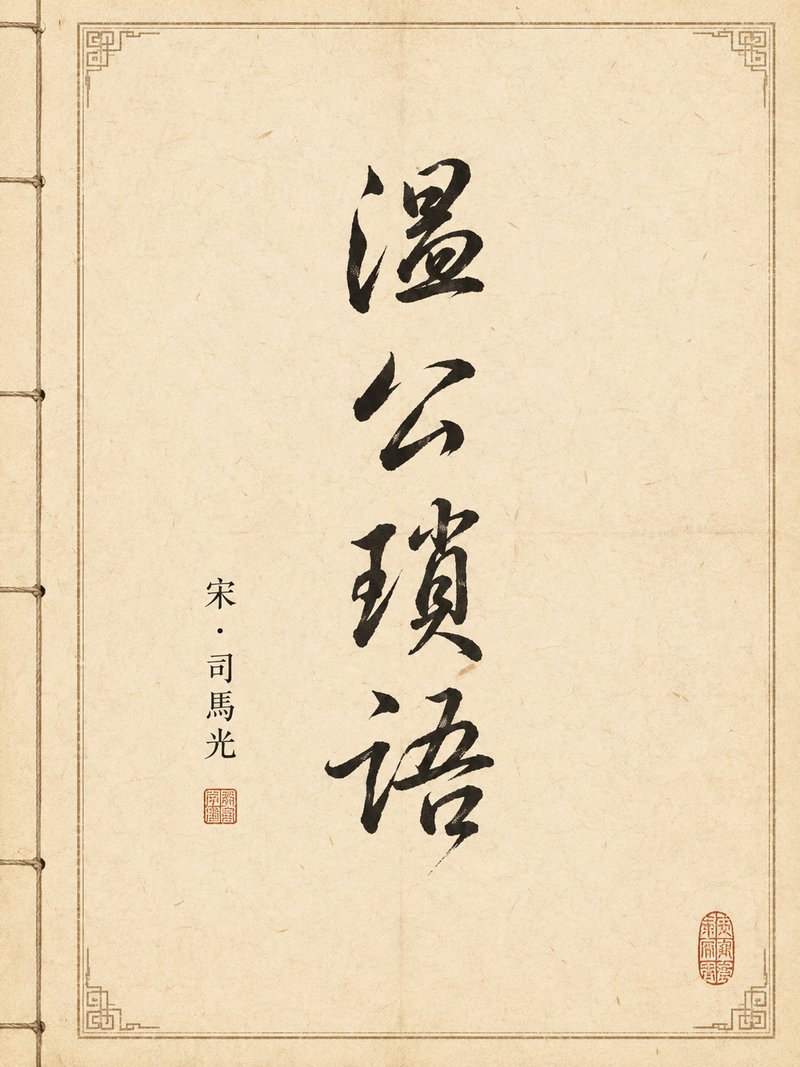 溫公瑣語
宋·司馬光